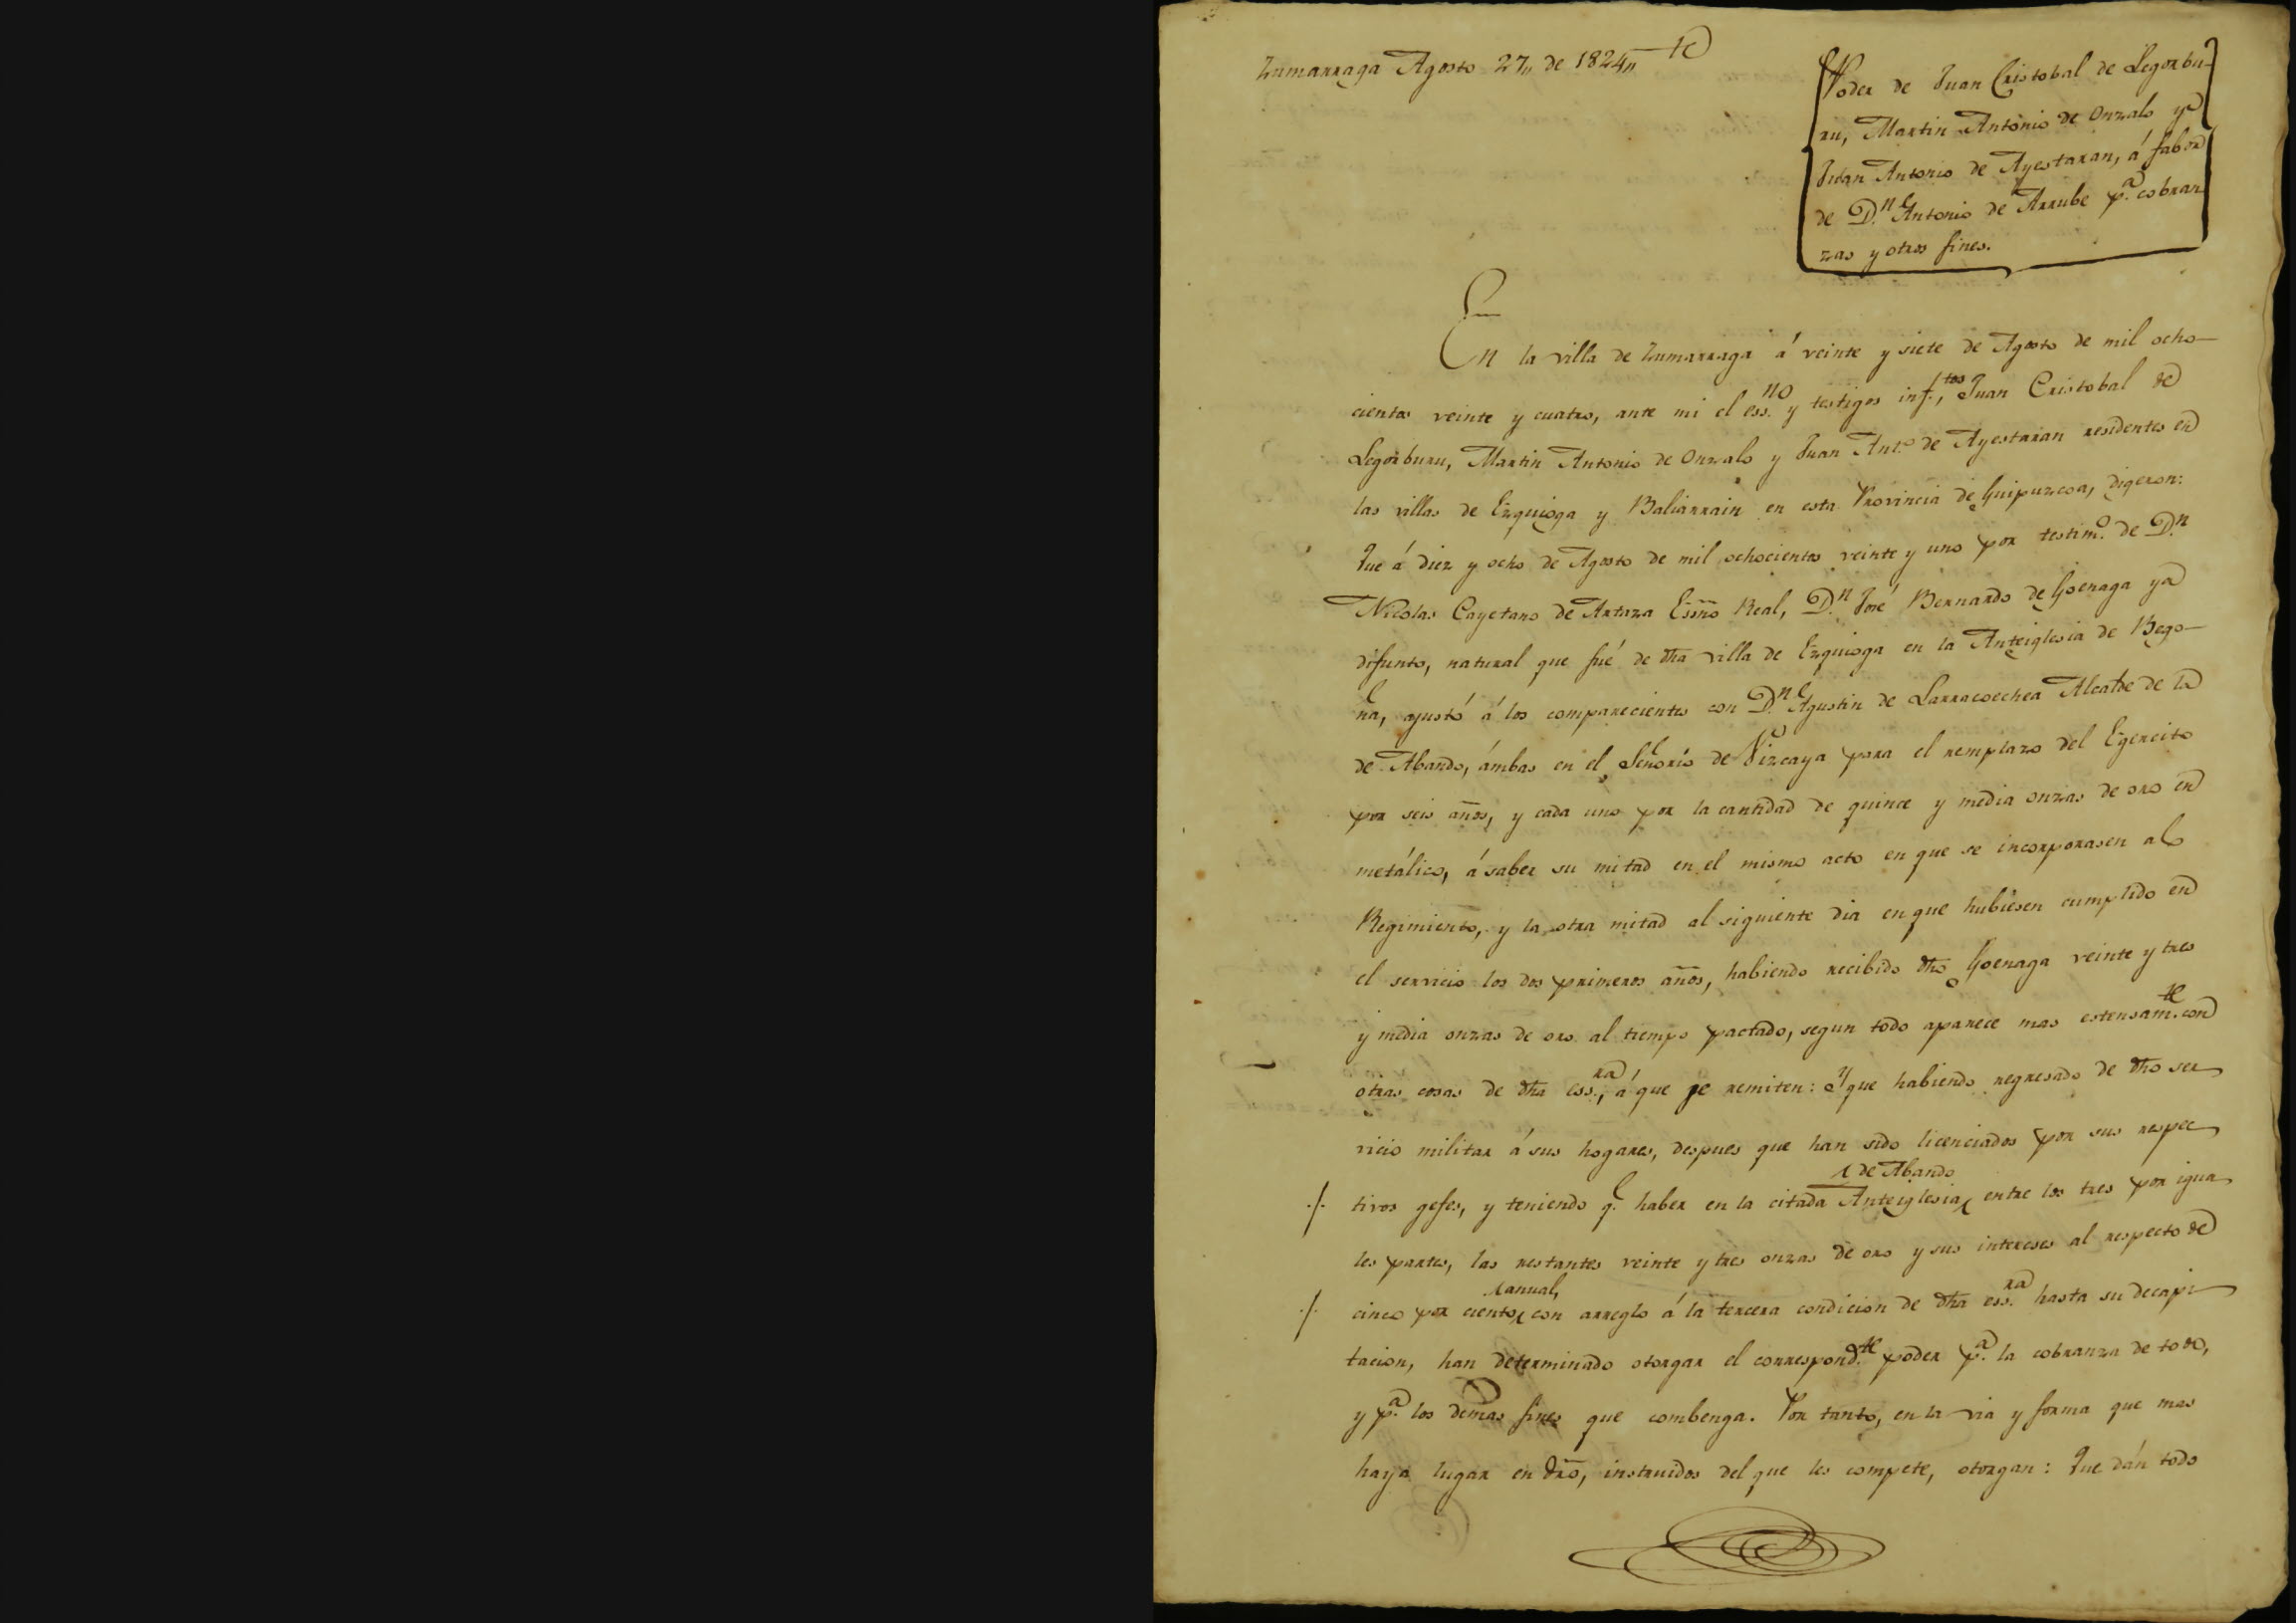 Zumarraga Agosto 27,, de 1824,,
Poder de Juan Cristobal de Legorbu-
ru, Martin Antonio de Onzalo y
Juan Antonio de Ayestaran, á fabor
de D.n Antonio de Arrube p.a cobran
zas y otros fines.
En la villa de Zumarraga á veinte y siete de Agosto de mil ocho-
cientos veinte y cuatro, ante mi el ess.no y testigos inf.tos, Juan Cristobal de
Legorburu, Martin Antonio de Onzalo y Juan Ant.o de Ayestaran residentes en
las villas de Ezquioga y Baliarrain en esta Provincia de Guipuzcoa, digeron:
Que á diez y ocho de Agosto de mil ochocientos veinte y uno por testim.o de D.n
Nicolas Cayetano de Artaza Essño Real, D.n José Bernardo de Goenaga ya
difunto, natural que fué de dha villa de Ezquioga en la Anteiglesia de Bego-
ña, ajustó á los comparecientes con D.n Agustin de Larracoechea Alcalde de la
de Abando, ámbas en el Señorío de Vizcaya para el remplazo del Egercito
por seis años, y cada uno por la cantidad de quince y media onzas de oro en
metálico, á saber su mitad en el mismo acto en que se incorporasen al
Regimiento, y la otra mitad al siguiente dia en que hubiesen cumplido en
el servicio los dos primeros años, habiendo recibido dho Goenaga veinte y tres
y media onzas de oro al tiempo pactado, segun todo aparece mas estensam.te con
otras cosas de dha ess.ra, á que se remiten: Y que habiendo regresado de dho ser
vicio militar á sus hogares, despues que han sido licenciados por sus respec
de Abando
./. tivos gefes, y teniendo q.e haber en la citada Anteiglesia, entre los tres por igua
les partes, las restantes veinte y tres onzas de oro y sus intereses al respecto de
anual,
./. cinco por ciento, con arreglo á la tercera condicion de dha ess.ra hasta su decapi
tacion, han determinado otorgar el correspond.te poder p.a la cobranza de todo,
y p.a los demas fines que combenga. Por tanto, en la via y forma que mas
haya lugar en dro, instruidos del que les compete, otorgan: Que dán todo